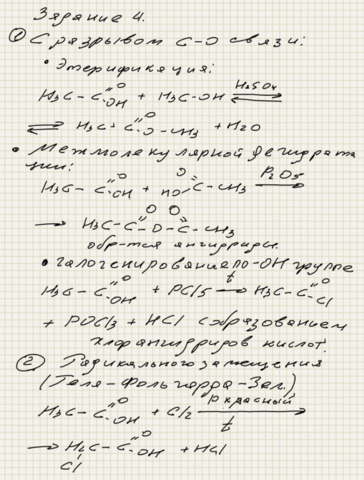 Задание 4.
① С разрывом C-O связи:
• Этерификация:
H₃C-C(=O)OH + H₃C-OH ⇌ (H₂SO₄)
⇌ H₃C-C(=O)O-CH₃ + H₂O
• Межмолекулярной дегидрата
ции:
H₃C-C(=O)OH + HO-C(=O)-CH₃ → (P₂O₅)
→ H₃C-C(=O)-O-C(=O)-CH₃
обр-тся ангидриды.
• галогенирование по -OH группе
H₃C-C(=O)OH + PCl5 →(t) H₃C-C(=O)Cl
+ POCl3 + HCl с образованием
хлорангидридов кислот.
② Радикального замещения
(Геля-Фольгарда-Зел.)
H₃C-C(=O)OH + Cl2 → (P красный, t)
→ H₂C(Cl)-C(=O)OH + HCl